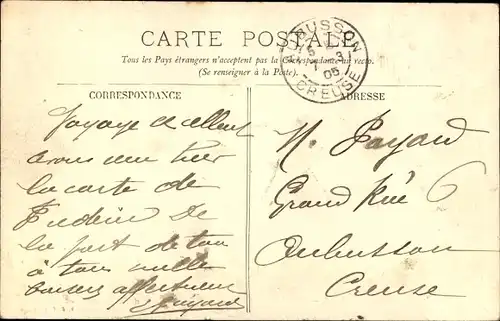 CARTE POSTALE
Tous les Pays étrangers n'acceptent pas la Correspondance au recto.
(Se renseigner à la Poste)
AUBUSSON
3
05
CREUSE
CORRESPONDANCE
Voyage excellent
avons reçu hier
la carte de
de
la part de
à tous mille
baisers affectueux
ADRESSE
M. Payard
Grand Rue 6
Aubusson
Creuse